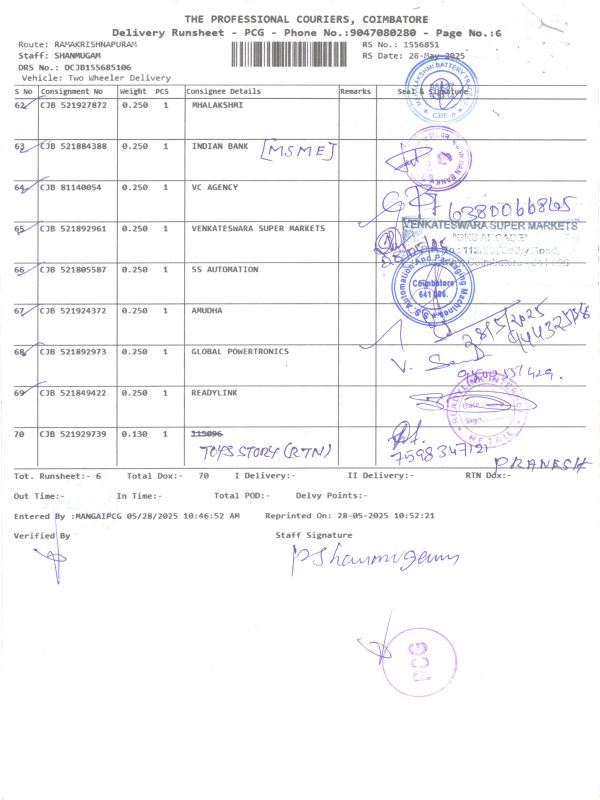 THE PROFESSIONAL COURIERS, COIMBATORE
Delivery Runsheet - PCG - Phone No.:9047080280 - Page No.:6
Route: RAMAKRISHNAPURAM RS No.: 1556851
Staff: SHANMUGAM RS Date: 28-May-2025
DRS No.: DCJB155685106
Vehicle: Two Wheeler Delivery
S No Consignment No Weight PCS Consignee Details Remarks Seal & Signature
62 CJB 521927872 0.250 1 MHALAKSHMI
63 CJB 521884388 0.250 1 INDIAN BANK [MSME]
64 CJB 81140054 0.250 1 VC AGENCY
6380066865
65 CJB 521892961 0.250 1 VENKATESWARA SUPER MARKETS
VENKATESWARA SUPER MARKETS
66 CJB 521805587 0.250 1 SS AUTOMATION
S S Automation And Packaging Machines
Coimbatore
641 006.
67 CJB 521924372 0.250 1 AMUDHA
28/5/2025
68 CJB 521892973 0.250 1 GLOBAL POWERTRONICS
69 CJB 521849422 0.250 1 READYLINK
READYLINK INTERNET
Date
Sign
RETAIL
70 CJB 521929739 0.130 1 115096
TOYS STORY (RTN)
7598347121
PRANESH
Tot. Runsheet:- 6 Total Dox:- 70 I Delivery:- II Delivery:- RTN Ddx:-
Out Time:- In Time:- Total POD:- Delvy Points:-
Entered By :MANGAIPCG 05/28/2025 10:46:52 AM Reprinted On: 28-05-2025 10:52:21
Verified By Staff Signature
PShanmugam
PCG